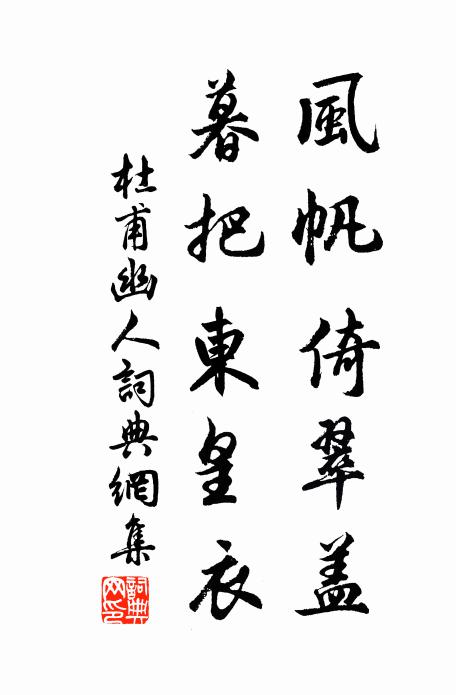 風帆倚翠盖
暮把東皇衣
杜甫幽人詞典網集
詞典网印